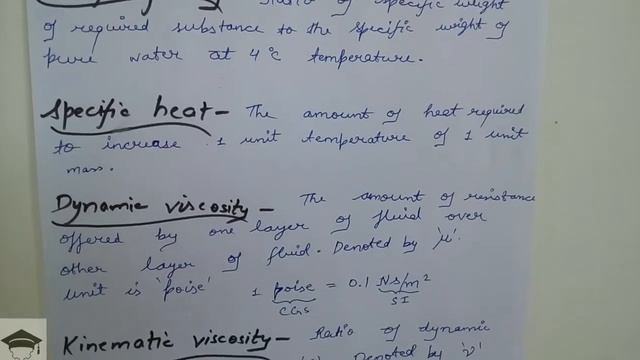 Ratio of specific weight
of required substance to the specific weight of
pure water at 4°C temperature.
Specific heat - The amount of heat required
to increase 1 unit temperature of 1 unit
mass.
Dynamic viscosity - The amount of resistance
offered by one layer of fluid over
other layer of fluid. Denoted by 'μ'.
unit is 'poise' 1 poise = 0.1 Ns/m²
CGS SI
Kinematic viscosity - Ratio of dynamic
Denoted by 'ν'